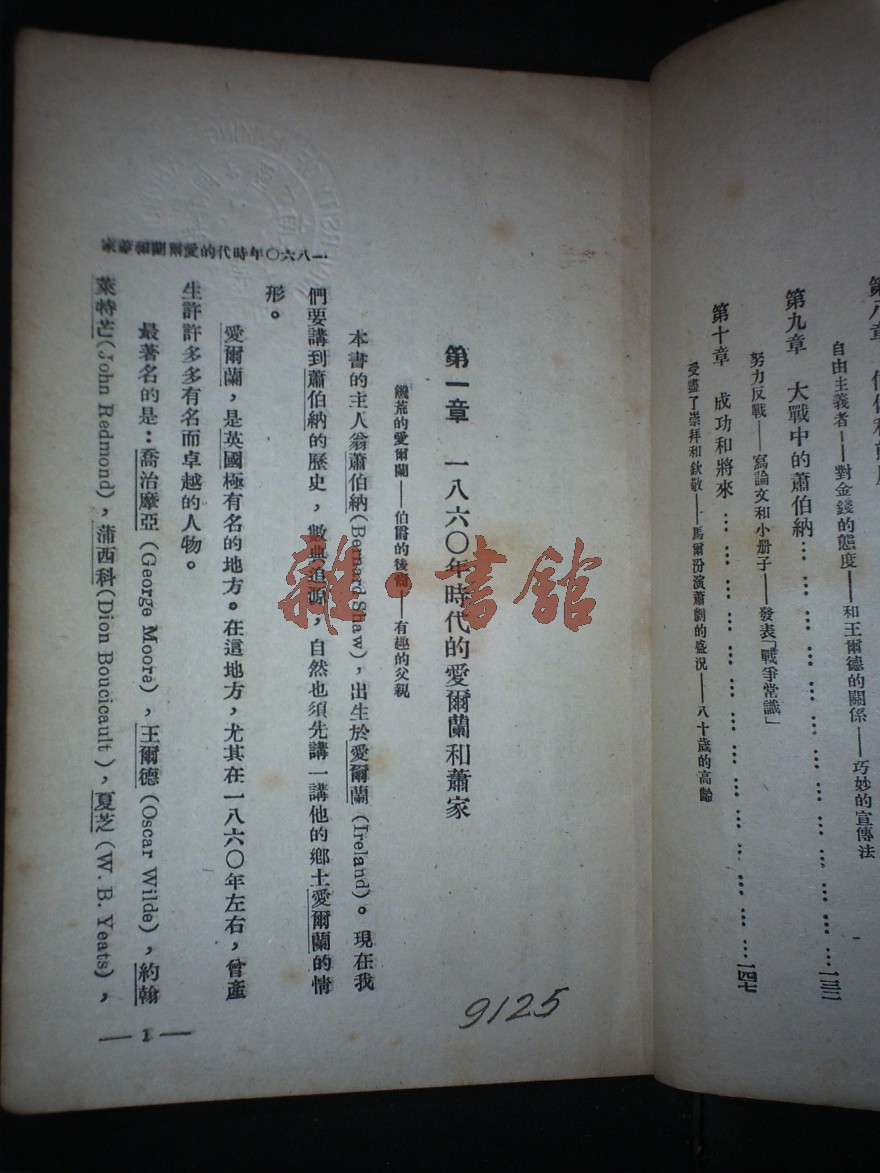 第九章　大戰中的蕭伯納……………………………一三二
努力反戰——寫論文和小册子——發表「戰爭常識」
第十章　成功和將來……………………………一四七
受盡了崇拜和欽敬——馬爾汾演蕭劇的盛况——八十歲的高齡
自由主義者——對金錢的態度——和王爾德的關係——巧妙的宣傳法
第一章　一八六〇年時代的愛爾蘭和蕭家
饑荒的愛爾蘭——伯爵的後裔——有趣的父親
本書的主人翁蕭伯納(Bernard Shaw)，出生於愛爾蘭(Ireland)。現在我
們要講到蕭伯納的歷史，數典追源，自然也須先講一講他的鄉土愛爾蘭的情
形。
愛爾蘭，是英國極有名的地方。在這地方，尤其在一八六〇年左右，曾產
生許許多多有名而卓越的人物。
最著名的是：喬治摩亞(George Moora)，王爾德(Oscar Wilde)，約翰
萊特芒(John Redmond)，蒲西科(Dion Boucicault)，夏芝(W. B. Yeats)，
一八六〇年時代的愛爾蘭和蕭家
— 1 —
9125
雜·書館